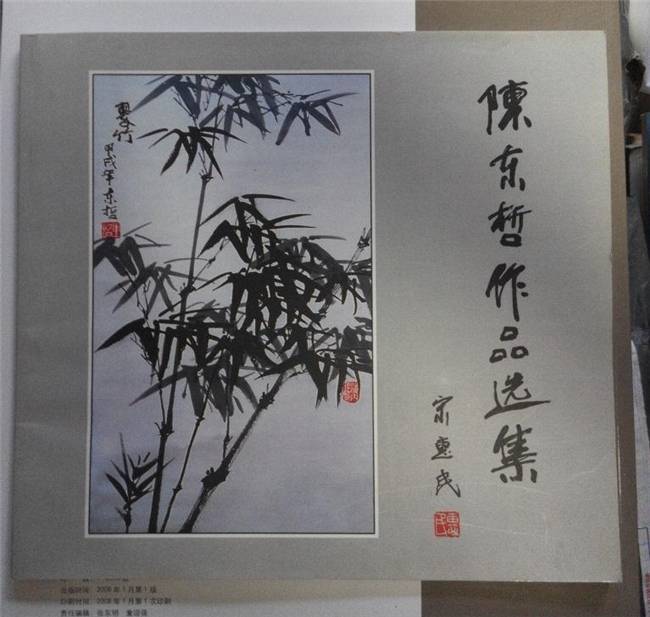 陳东哲作品选集
宗惠民
墨竹
甲戌年东哲
出版时间: 2008年1月第1版
印刷时间: 2008年1月第1次印刷
责任编辑: 张东明 童迎强